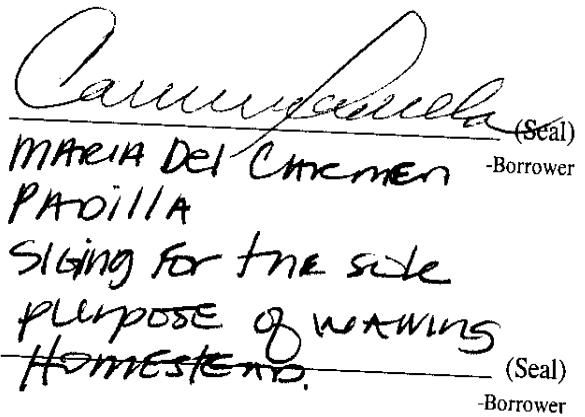 (Seal)
MARIA Del CARMEN -Borrower
PADILLA
SIGING FOR the sole
PURPOSE of WAIVING
HOMESTEAD. (Seal)
-Borrower